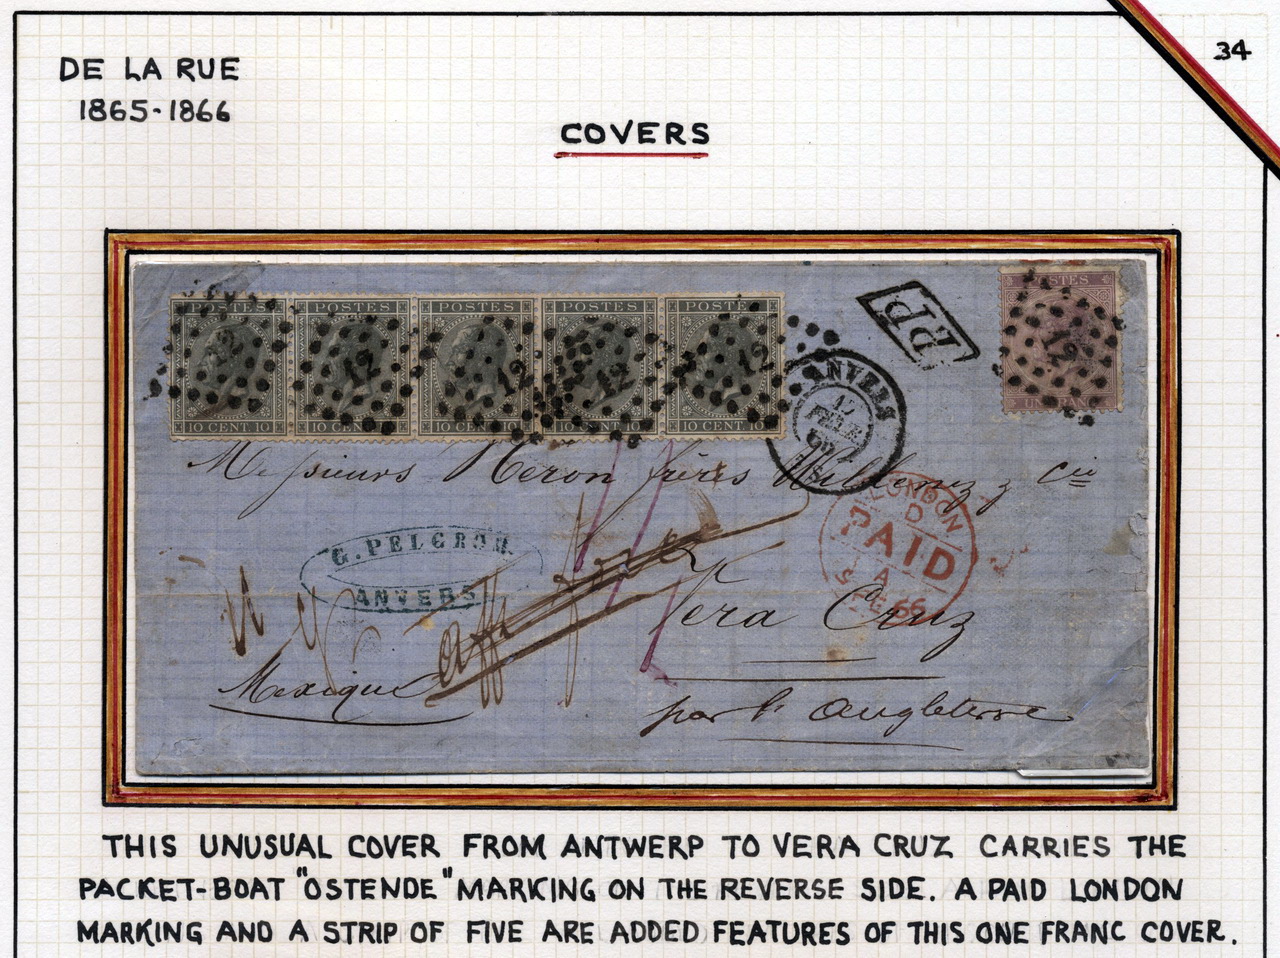 34
DE LA RUE
1865-1866
COVERS
POSTES POSTES POSTES POSTES POSTES
12 12 12 12 12
10 CENT. 10 10 CENT. 10 10 CENT. 10 10 CENT. 10 10 CENT. 10
PP
POSTES
12
UN FRANC
ANVERS
Messieurs Héron frères Cie
LONDON
D
PAID
A
66
G. PELGROM
ANVERS
Vera Cruz
Mexique
par l'Angleterre
THIS UNUSUAL COVER FROM ANTWERP TO VERA CRUZ CARRIES THE
PACKET-BOAT "OSTENDE" MARKING ON THE REVERSE SIDE. A PAID LONDON
MARKING AND A STRIP OF FIVE ARE ADDED FEATURES OF THIS ONE FRANC COVER.